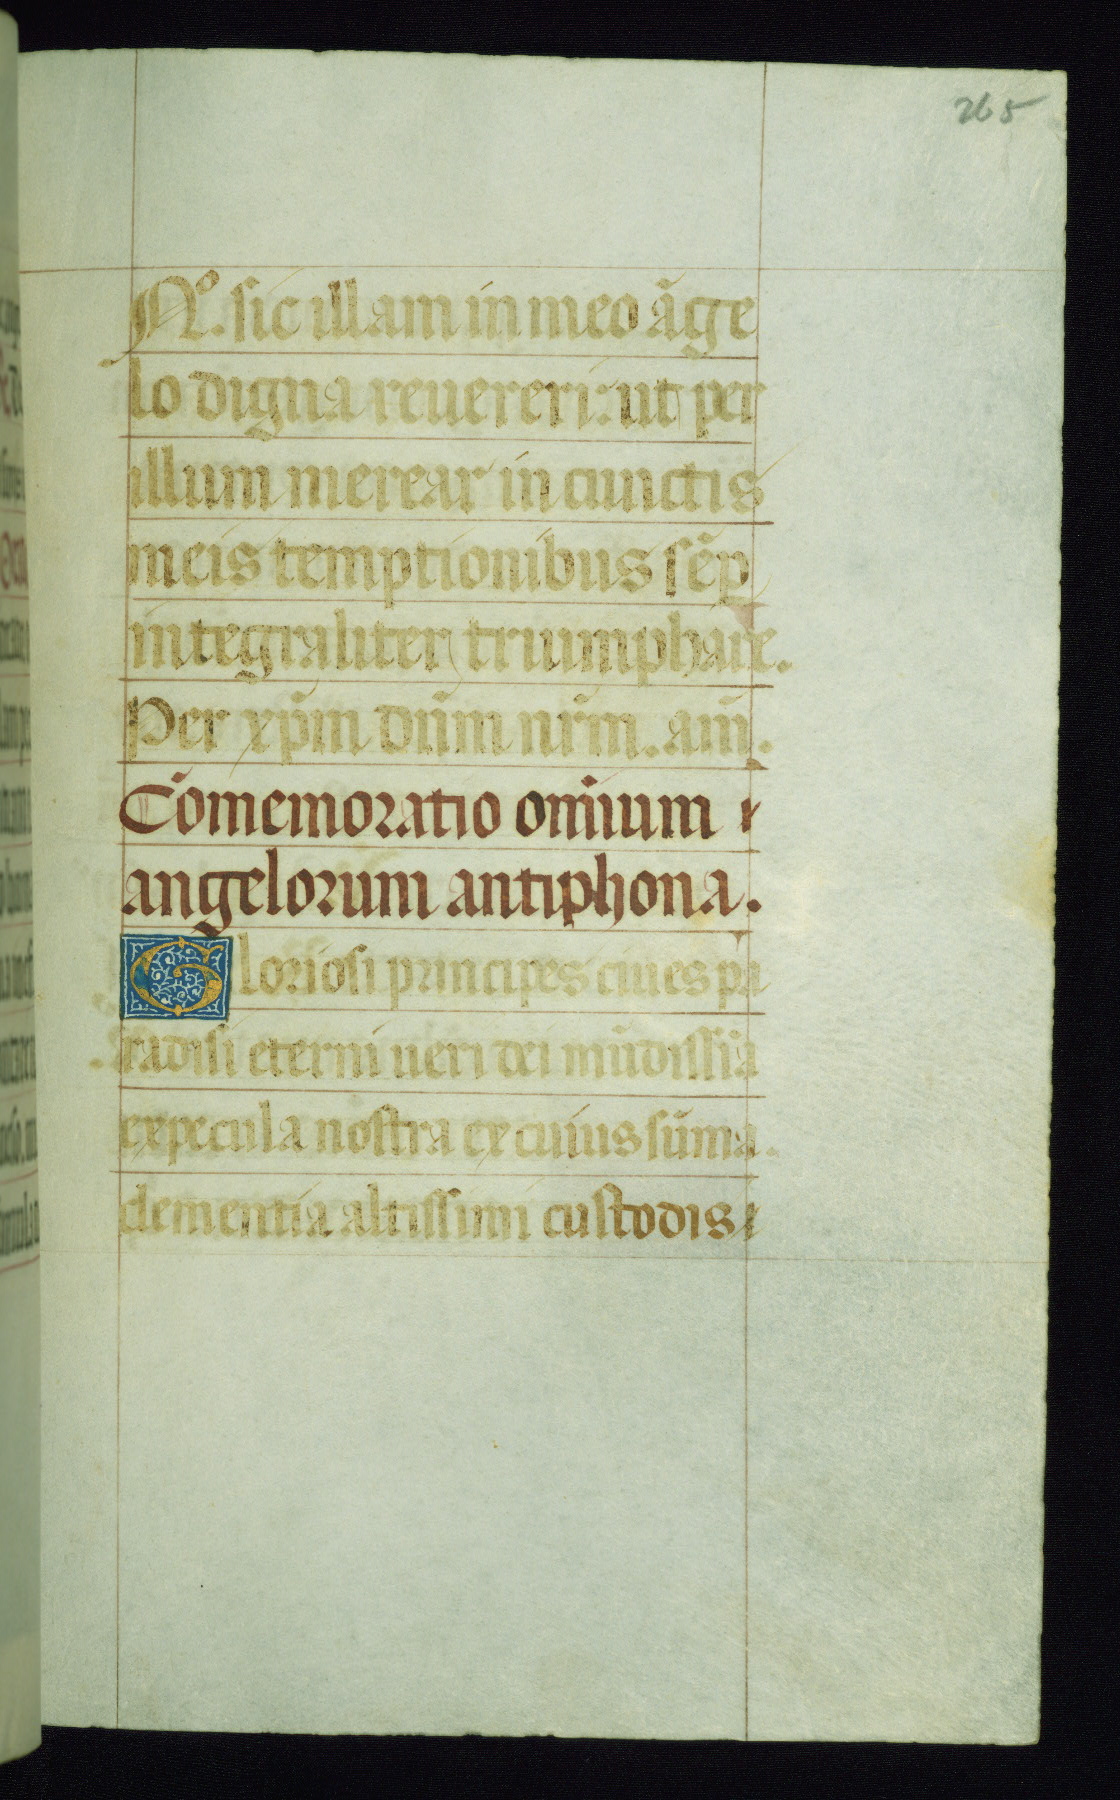 265
N°. sic illam in meo ãge
lo digna reuereri: ut per
illum merear in cunctis
meis temptionibus sẽp
integraliter triumphare.
Per xp̃m dũm nr̃m. am̃.
Cõmemoratio om̃ium
angelorum antiphona.
Gloriosi principes ciues pa
radisi eterni ueri dei mũdissia
expecula nostra ex cuius sũma.
clementia altissimi custodis